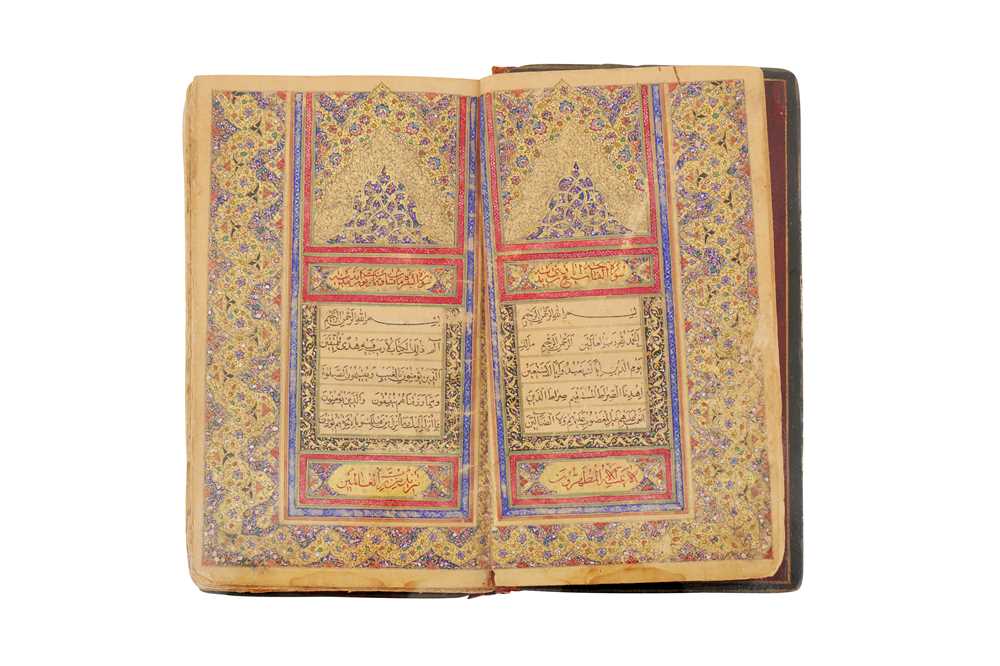 سورة الفاتحة سبع
بسم الله الرحمن الرحيم
الحمد لله رب العالمين الرحمن الرحيم مالك
يوم الدين اياك نعبد واياك نستعين
اهدنا الصراط المستقيم صراط الذين
انعمت عليهم غير المغضوب عليهم ولا الضالين
لا يمسه الا المطهرون
سورة البقرة
بسم الله الرحمن الرحيم
الم ذلك الكتاب لا ريب فيه هدى للمتقين
الذين يؤمنون بالغيب ويقيمون الصلوة
ومما رزقناهم ينفقون والذين يؤمنون
بما انزل اليك وما انزل من قبلك وبالاخرة هم يوقنون
تنزيل من رب العالمين